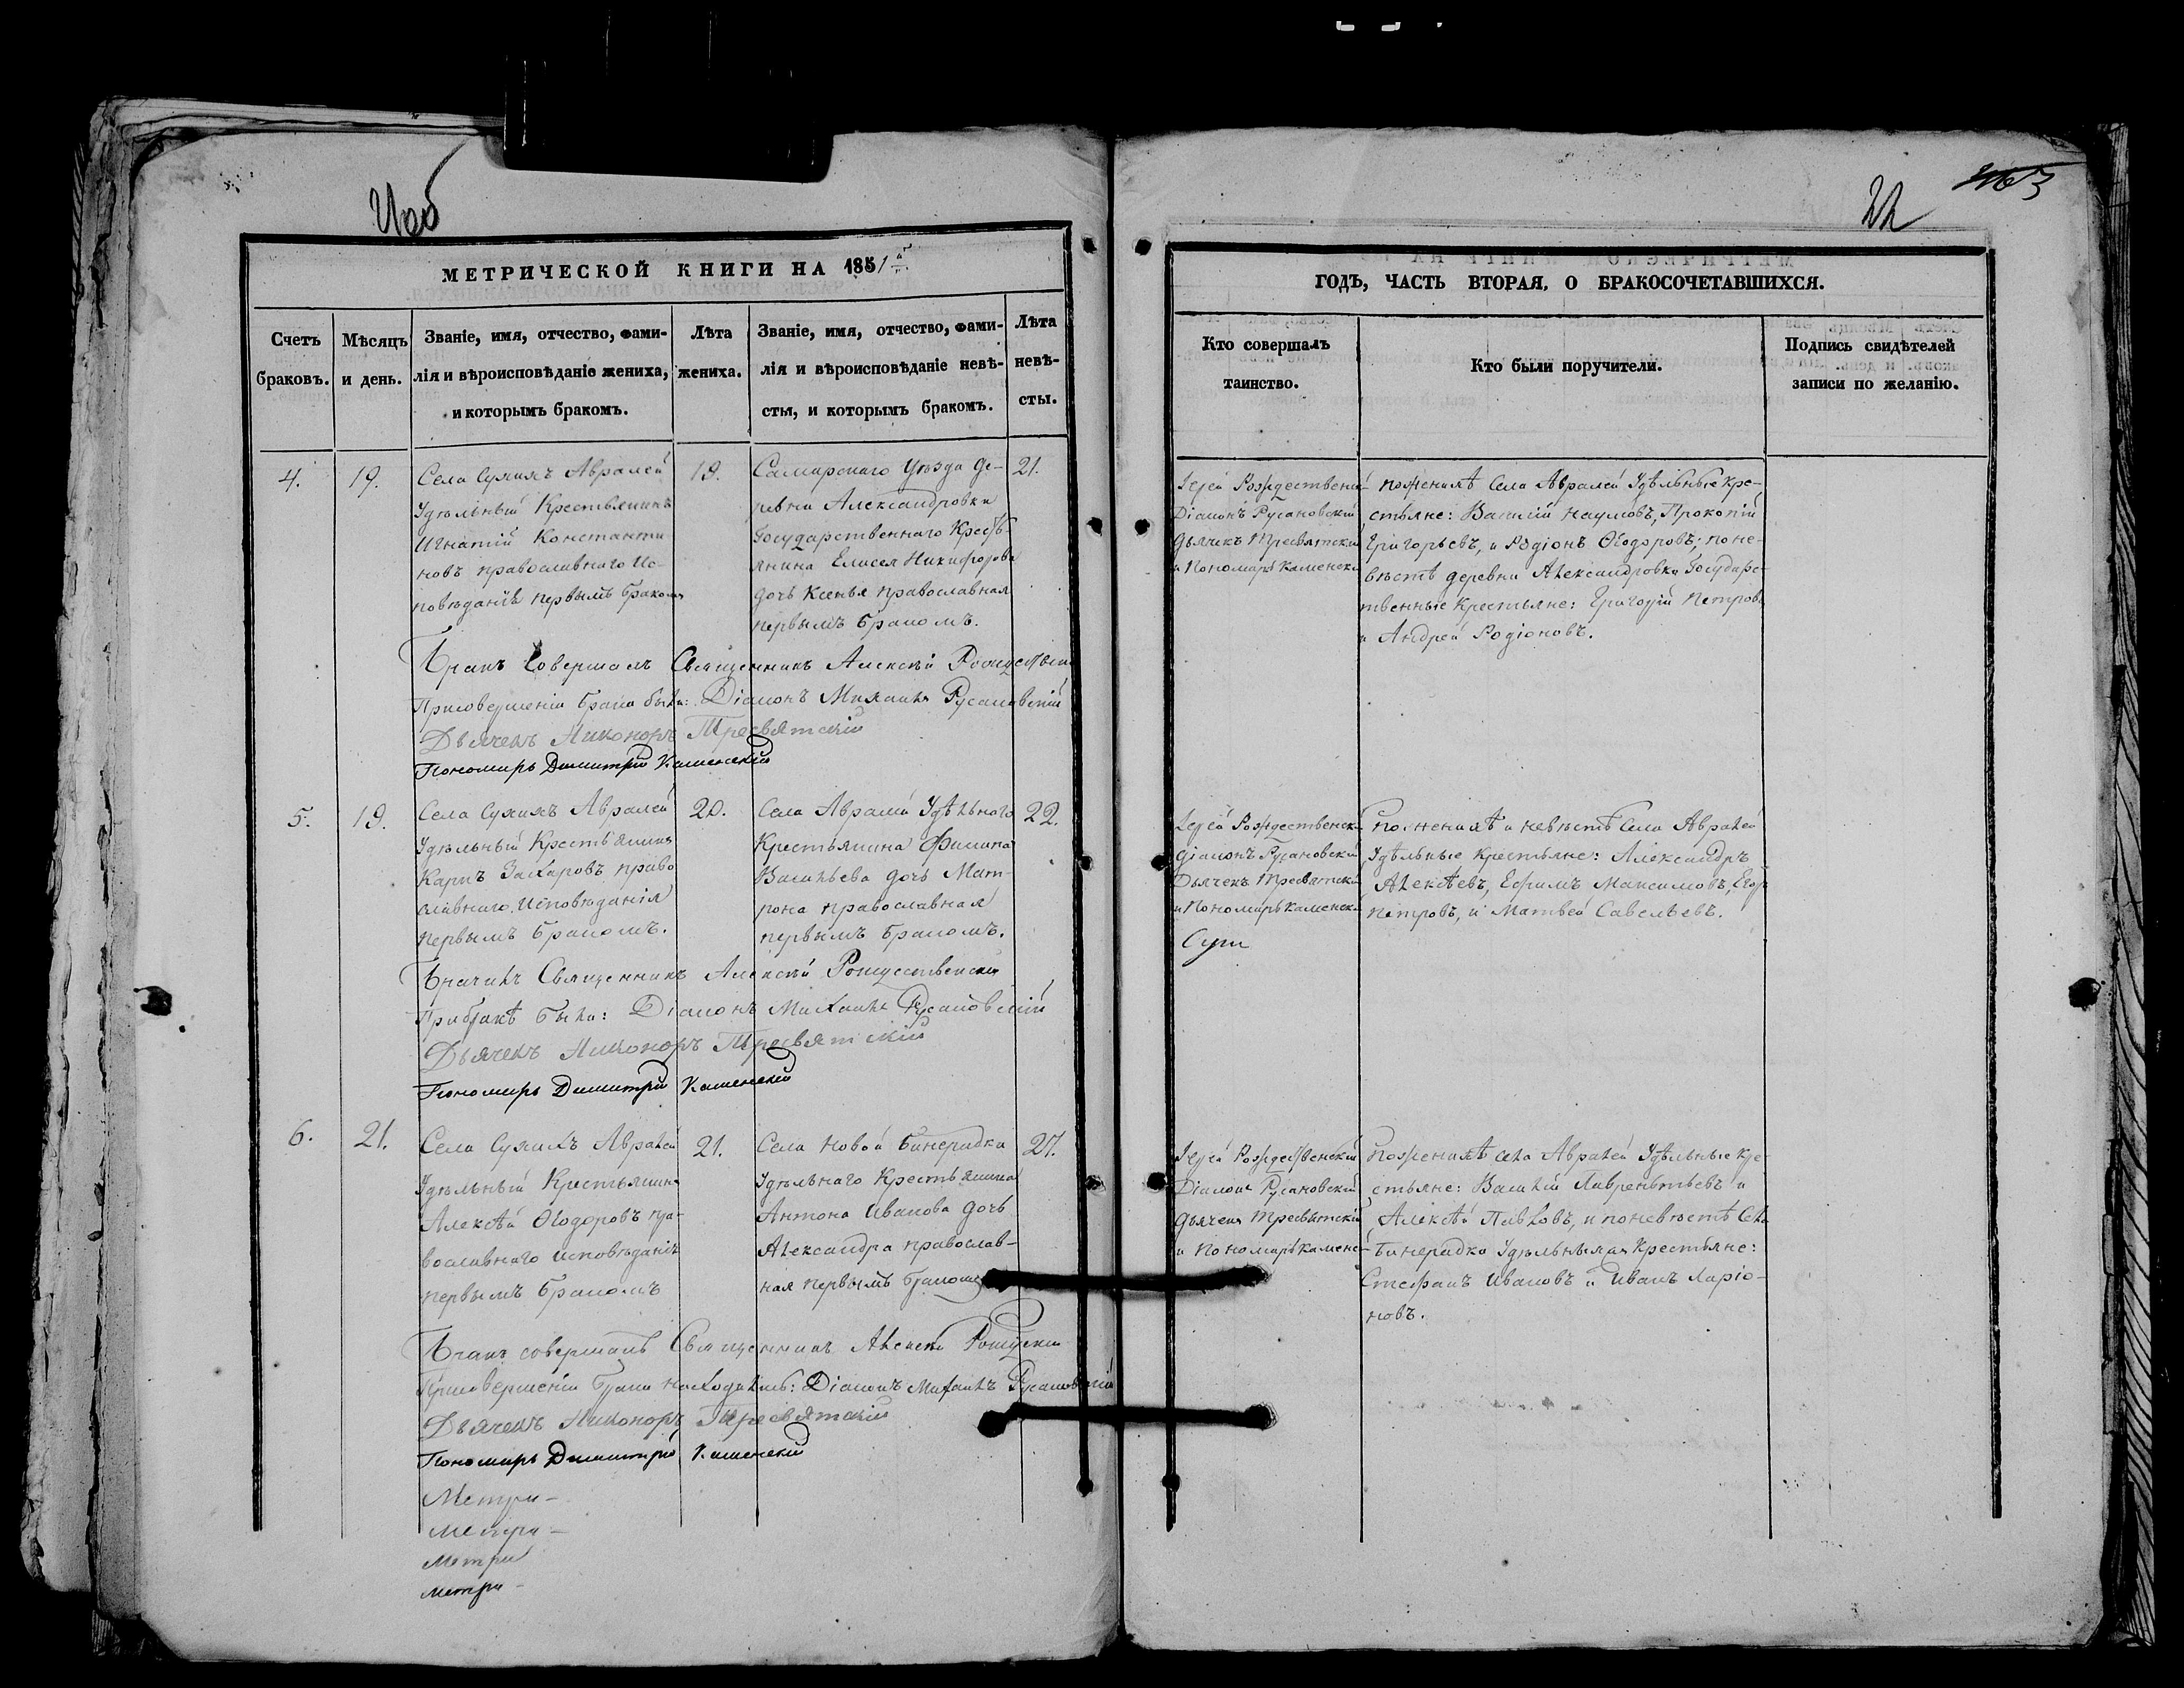 Иоб
22
463
МЕТРИЧЕСКОЙ КНИГИ НА 1851
Счетъ браковъ.
Мѣсяцъ и день.
Званіе, имя, отчество, фами-
лія и вѣроисповѣданіе жениха,
и которымъ бракомъ.
Лѣта жениха.
Званіе, имя, отчество, фами-
лія и вѣроисповѣданіе невѣ-
сты, и которымъ бракомъ.
Лѣта невѣ-
сты.
4.
19.
Села Сухихъ Авралей
Удѣльный Крестьянинъ
Игнатій Константи-
новъ православнаго Ис-
повѣданія первымъ бракомъ
19.
Самарскаго Уѣзда де-
ревни Александровки
Государственнаго Кресть-
янина Елисея Никифорова
дочь Ксенья православная
первымъ бракомъ.
21.
Бракъ Совершалъ Священникъ Алексѣй Рождествен
При совершеніи брака были: Діаконъ Михаилъ Русановскій
Дьячекъ Никоноръ Тресвятскій
Пономарь Димитрій Каменскій
5.
19.
Села Сухихъ Авралей
Удѣльный Крестьянинъ
Карпъ Захаровъ право
славнаго Исповѣданія
первымъ бракомъ.
20.
Села Авралей Удѣльнаго
Крестьянина Филипа
Васильева дочь Мат-
рона православная
первымъ бракомъ.
22.
Священникъ Алексѣй Рождественскій
При бракѣ были: Діаконъ Михаилъ Русановскій
Дьячекъ Никоноръ Тресвятскій
Пономарь Димитрій Каменскій
6.
21.
Села Сухихъ Авралей
Удѣльный Крестьянинъ
Алексѣй Ѳеодоровъ пра-
вославнаго исповѣданія
первымъ бракомъ
21.
Села Новой Бинерадки
Удѣльнаго Крестьянина
Антона Иванова дочь
Александра православ-
ная первымъ бракомъ
27.
Бракъ совершалъ Священникъ Алексѣй
При совершеніи брака находились: Діаконъ Михаилъ Русановскій
Дьячекъ Никоноръ Тресвятскій
Пономарь Димитрій Каменскій
Метри-
Метри-
Метри
Метри-
ГОДЪ, ЧАСТЬ ВТОРАЯ, О БРАКОСОЧЕТАВШИХСЯ.
Кто совершалъ
таинство.
Кто были поручители.
Подпись свидѣтелей
записи по желанію.
Іерей Рождественскі
Діаконъ Русановскій
Дьячекъ Тресвятскій
и Пономарь Каменскі
По женихѣ Села Авралей Удѣльные Кре-
стьяне: Василій Наумовъ, Прокопій
Григорьевъ, и Родіонъ Ѳеодоровъ; по не-
вѣстѣ деревни Александровки Государс-
твенные Крестьяне: Григорій Петровъ
и Андрей Родіоновъ.
Іерей Рождественскі
Діаконъ Русановскій
Дьячекъ Тресвятскій
и Пономарь Каменскі
По женихѣ и невѣстѣ Села Авралей
Удѣльные крестьяне: Александръ
Алексѣевъ, Ефимъ Максимовъ, Егоръ
Петровъ, и Матвей Савельевъ.
Іерей Рождественскій
Діаконъ Русановскій
Дьячекъ Тресвятскій
и Пономарь Каменс-
По женихѣ села Авралей Удѣльные кре-
стьяне: Василій Лаврентьевъ и
Алексѣй Павловъ, и по невѣстѣ Села
Бинерадки Удѣльныя Крестьяне:
Стефанъ Ивановъ и Иванъ Ларіо-
новъ.